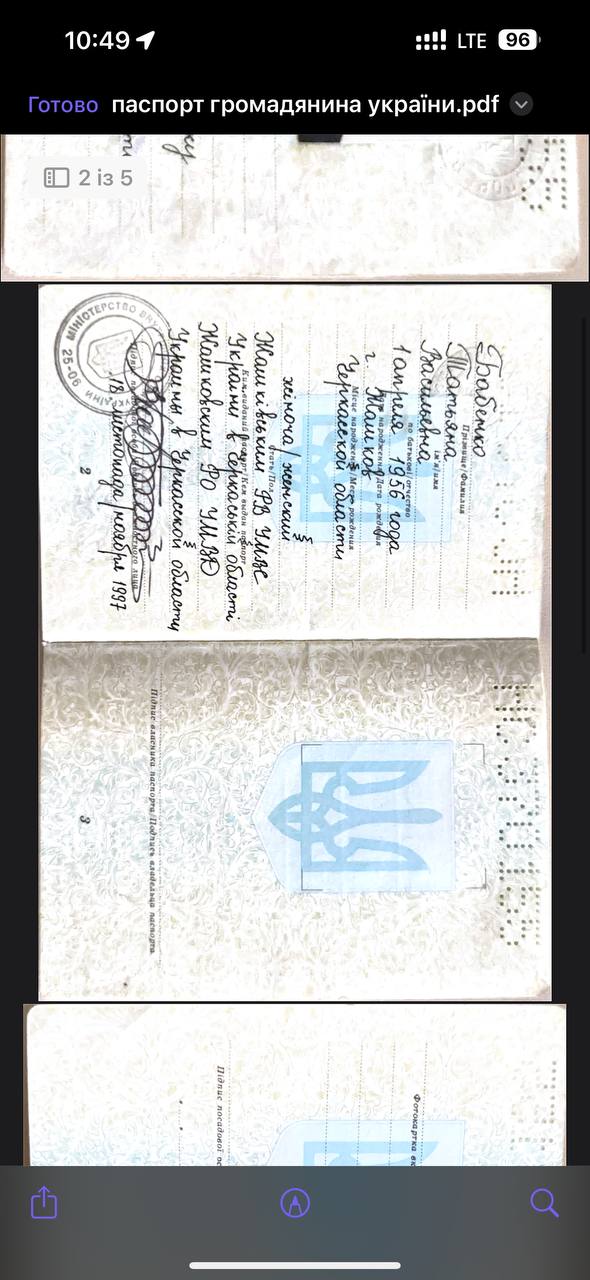 10:49
LTE
96
Готово
паспорт громадянина україни.pdf
2 із 5
Бабенко
Прізвище/Фамилия
Татьяна
ім'я/имя
Васильевна
по батькові/отчество
1 апреля 1956 года
народження/Дата рождения
г. Жашков
Місце народження/Место рождения
Черкасской области
жіноча/женский
Стать/Пол
Жашківським РВ УМВС
України в Черкаській області
Ким виданий паспорт/Кем выдан паспорт
Жашковским РО УМВД
Украины в Черкасской области
18 листопада/ноября 1997
МІНІСТЕРСТВО ВНУ
УКРАЇНИ
25-90
2
Підпис власника паспорта/Подпись владельца паспорта
3
Фотокартка
Підпис посадової